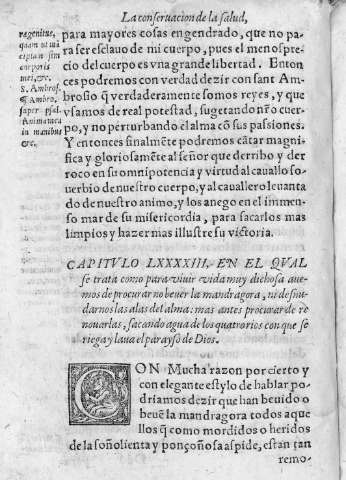 La conseruacion de la salud,
regenitus,
quam vt mi
cipium sim
corporis
mei, &c.
S. Ambros.
¶ Ambro.
super psal.
Anima mea
in manibus
&c.
para mayores cosas engendrado, que no pa
ra ser esclauo de mi cuerpo, pues el menospre
cio del cuerpo es vna grande libertad. Enton
ces podremos con verdad dezir con sant Am
brosio q̃ verdaderamente somos reyes, y que
vsamos de real potestad, sugetando nr̃o cuer
po, y no perturbando el alma cõ sus passiones.
Y entonces finalmẽte podremos cãtar magni
fica y gloriosamẽte al señor que derribo y der
roco en su omnipotencia y virtud al cauallo so
uerbio de nuestro cuerpo, y al cauallero leuanta
do de nuestro animo, y los anego en el immen
so mar de su misericordia, para sacarlos mas
limpios y hazer mas illustre su victoria.
CAPITVLO LXXXXIII, EN EL QVAL
se trata como para viuir vida muy dichosa aue-
mos de procurar no beuer la mandragora, ni desnu-
darnos las alas del alma: mas antes procurar de re
nouarlas, sacando agua de los quatro rios con que se
riega y laua el parayso de Dios.
CON Mucha razon por cierto y
con elegante estylo de hablar po-
driamos dezir que han beuido o
beuẽ la mandragora todos aque
llos q̃ como mordidos o heridos
de la soñolienta y ponçoñosa aspide, estan tan
remo-